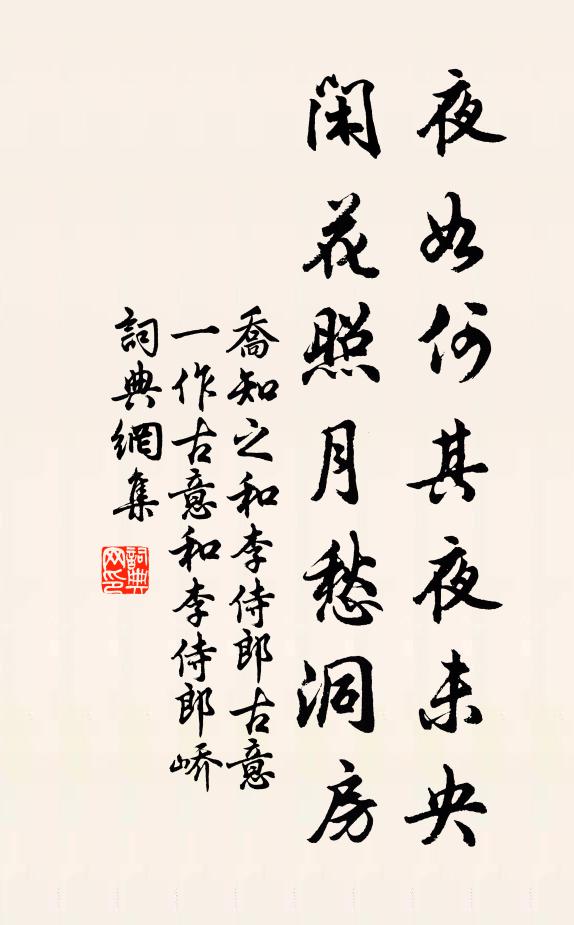 夜如何其夜未央
闲花照月愁洞房
喬知之和李侍郎古意
一作古意和李侍郎嶠
詞典網集
詞典
网印